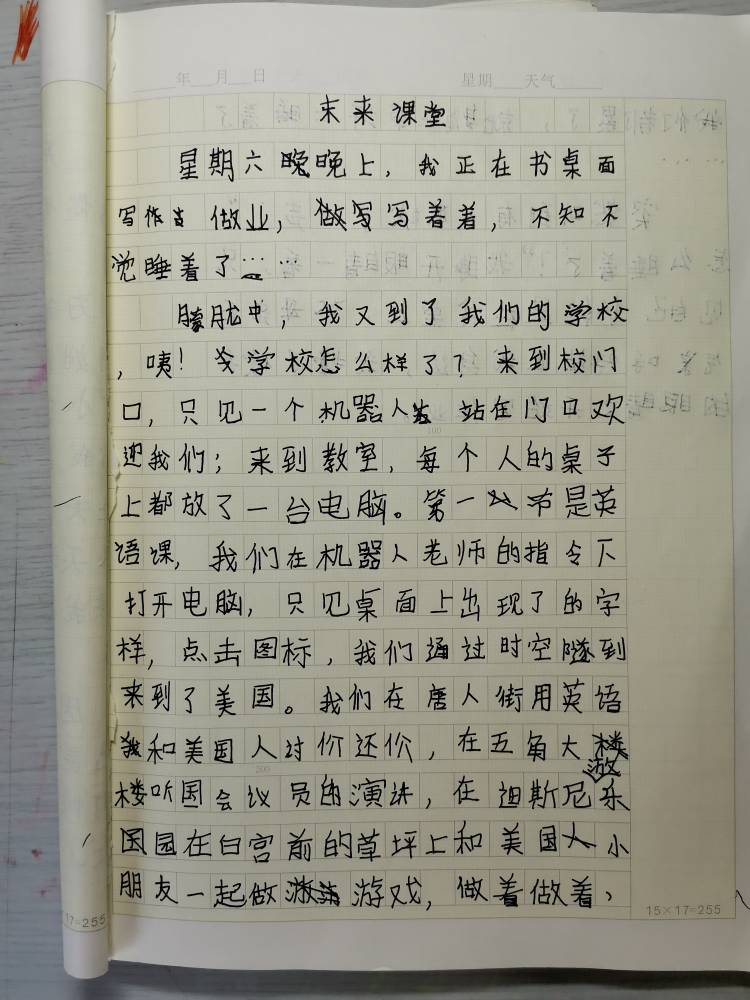 年 月 日 星期 天气
末来课堂
星期六晚晚上，我正在书桌面
写作 做业，做写写着着，不知不
觉睡着了……
朦胧中，我又到了我们的学校
，咦！学校怎么样了？来到校门
口，只见一个机器人 站在门口欢
迎我们；来到教室，每个人的桌子
上都放了一台电脑。第一 节是英
语课，我们在机器人老师的指令下
打开电脑，只见桌面上出现了的字
样，点击图标，我们通过时空隧到
来到了美国。我们在唐人街用英语
和美国人讨价还价，在五角大楼
楼听国会议员的演讲，在迪斯尼乐
游
国园在白宫前的草坪上和美国人小
朋友一起做 游戏，做着做着、
17=255
15×17=255
100
200